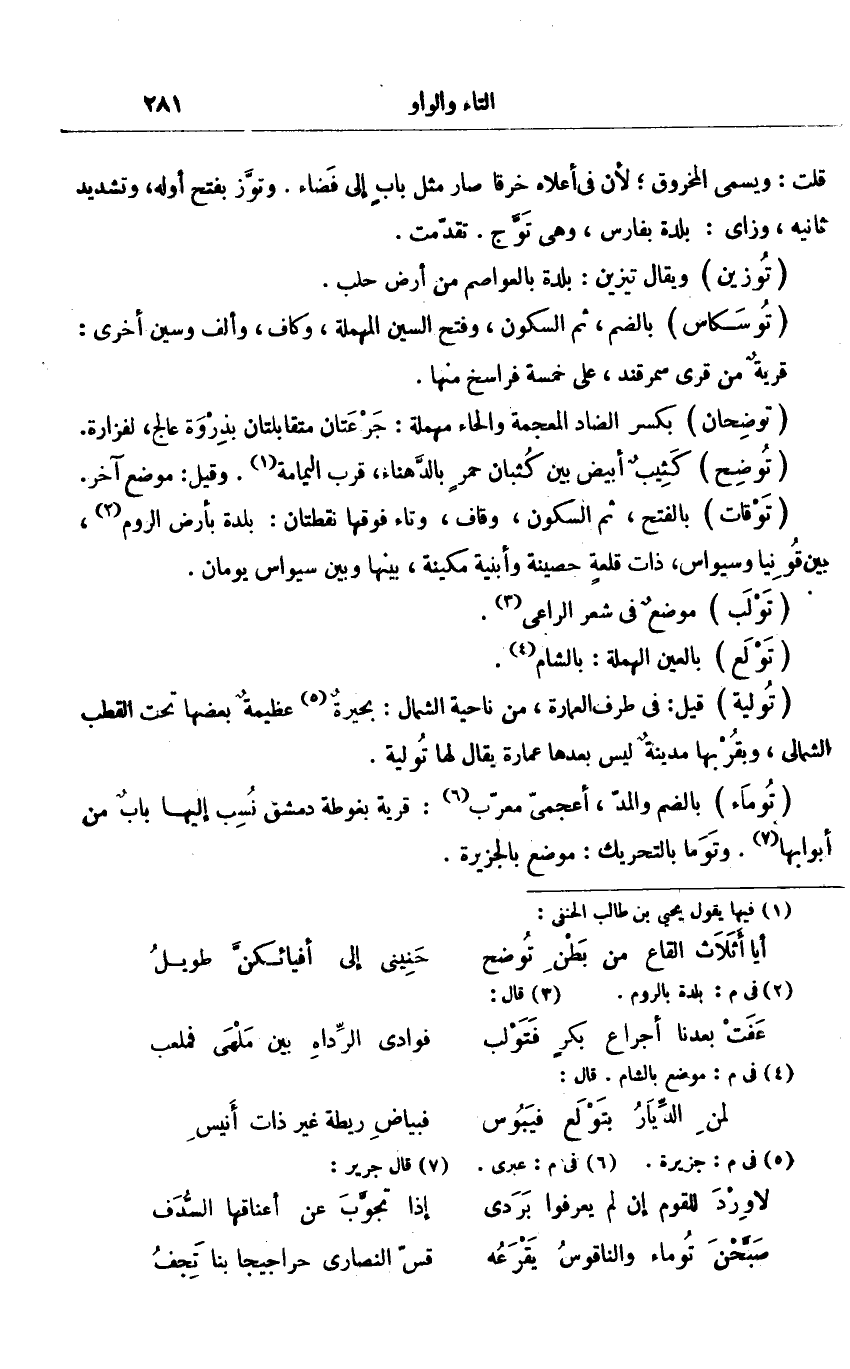 التاء والواو ٢٨١
قلت : ويسمى المخروق ؛ لأن فى أعلاه خرقا صار مثل بابٍ إلى فَضاء . وتوَّز بفتح أوله، وتشديد
ثانيه ، وزاى : بلدة بفارس ، وهى تَوَّج . تقدّمت .
( تُوزين ) ويقال تيزين : بلدة بالعواصم من أرض حلب .
( تُوسَكاس ) بالضم ، ثم السكون ، وفتح السين المهملة ، وكاف ، وألف وسين أخرى :
قريةٌ من قرى سمرقند ، على خمسة فراسخ منها .
( توضِحان ) بكسر الضاد المعجمة والحاء مهملة : جَرْعَتان متقابلتان بذِرْوَة عالج، لفزارة.
( تُوضِح ) كَثِيبٌ أبيض بين كُثبان حمرٍ بالدَّهناء، قرب اليمامة(١) . وقيل: موضع آخر.
( تَوْقات ) بالفتح ، ثم السكون ، وقاف ، وتاء فوقها نقطتان : بلدة بأرض الروم(٢) ،
بين قُونِيا وسيواس، ذات قلعةٍ حصينة وأبنية مكينة ، بينها وبين سيواس يومان .
( تَوْلَب ) موضعٌ فى شعر الراعى(٣) .
( تَوْلَع ) بالعين المهملة : بالشام(٤) .
( تُولية ) قيل: فى طرف العمارة ، من ناحية الشمال : بحيرةٌ(٥) عظيمةٌ بعضها تحت القطب
الشمالى ، وبقُرْبها مدينةٌ ليس بعدها عمارة يقال لها تُولية .
( تُومَاء ) بالضم والمدّ ، أعجمىّ معرّب(٦) : قرية بغوطة دمشق نُسِب إليها بابٌ من
أبوابها(٧) . وتَوَما بالتحريك : موضع بالجزيرة .
(١) فيها يقول يحيي بن طالب الحنفى :
أيا أَثَلَاث القاع من بَطْنِ تُوضح حَنِينى إلى أفيائكنَّ طويلُ
(٢) فى م : بلدة بالروم . (٣) قال :
عَفَتْ بعدنا أجراع بكرٍ فَتَوْلب فوادى الرِّداهِ بين مَلْهَى فملعب
(٤) فى م : موضع بالشام . قال :
لمنِ الدِّيَارُ بتَوْلَع فيَبُوس فبياضِ ريطة غير ذات أَنيسِ
(٥) فى م : جزيرة . (٦) فى م : عبرى . (٧) قال جرير :
لا وِرْدَ للقوم إن لم يعرفوا بَرَدى إذا تجوَّبَ عن أعناقها السُّدَف
صَبَّحْنَ تُوماء والناقوسُ يَقْرَعُه قسّ النصارى حراجيجا بنا تَجِفُ